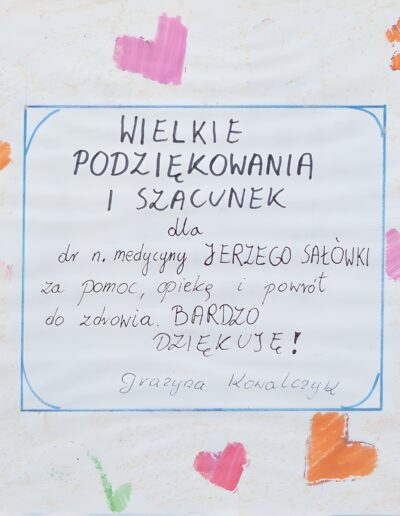 WIELKIE
PODZIĘKOWANIA
I SZACUNEK
dla
dr n. medycyny JERZEGO SAŁÒWKI
za pomoc, opiekę i powrót
do zdrowia. BARDZO
DZIĘKUJĘ!
Grażyna Kowalczyk